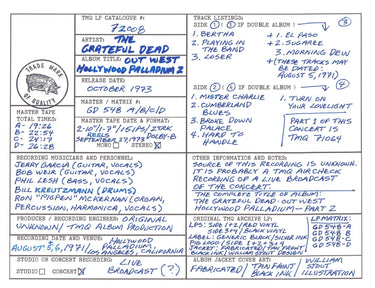 TMQ LP CATALOGUE #:
72008
ARTIST: THE
GRATEFUL DEAD
ALBUM TITLE: OUT WEST
HOLLYWOOD PALLADIUM 2
RELEASE DATE:
OCTOBER 1973
MASTER / MATRIX #:
GD 548 A/B/C/D
TRADE MARK
OF QUALITY
MASTER TAPE
TOTAL TIMES:
A - 19:26
B - 22:54
C - 24:17
D - 26:28
MASTER TAPE DATE & FORMAT:
2-10"/1-7"/15 IPS/2TRK
REELS
SEPTEMBER 27, 1973 DOLBY-B
MONO STEREO X
TRACK LISTINGS:
SIDE 1 : 3 IF DOUBLE ALBUM : 3
1. BERTHA
2. PLAYING IN
THE BAND
3. LOSER
+ 1. EL PASO
+ 2. SUGAREE
3. MORNING DEW
+ (THESE TRACKS MAY
BE DATED:
AUGUST 5, 1971)
SIDE 2 : 4 IF DOUBLE ALBUM : 4
1. MISTER CHARLIE
2. CUMBERLAND
BLUES
3. BROKE DOWN
PALACE
4. HARD TO
HANDLE
1. TURN ON
YOUR LOVELIGHT
PART 1 OF THIS
CONCERT IS
TMQ 71064
RECORDING MUSICIANS AND PERSONNEL:
JERRY GARCIA (GUITAR, VOCALS)
BOB WEIR (GUITAR, VOCALS)
PHIL LESH (BASS, VOCALS)
BILL KREUTZMANN (DRUMS)
RON "PIGPEN" McKERNAN (ORGAN,
PERCUSSION, HARMONICA, VOCALS)
OTHER INFORMATION AND NOTES:
SOURCE OF THIS RECORDING IS UNKNOWN.
IT IS PROBABLY A TMQ AIRCHECK
RECORDING OF A LIVE BROADCAST
OF THE CONCERT.
THE COMPLETE TITLE OF ALBUM:
THE GRATEFUL DEAD - OUT WEST
HOLLYWOOD PALLADIUM - PART 2
PRODUCER / RECORDING ENGINEER: ORIGINAL
UNKNOWN / TMQ ALBUM PRODUCTION
RECORDING DATE AND VENUE: HOLLYWOOD
PALLADIUM
LOS ANGELES, CALIFORNIA
STUDIO OR CONCERT RECORDING: LIVE
STUDIO CONCERT X BROADCAST (?)
ORIGINAL TMQ ARCHIVE LP:
LP MATRIX:
GD 548-A
GD 548-B
GD 548-C
GD 548-D
ALBUM JACKET COVER AND INSERT:
FABRICATED / TAN FRONT
BLACK INK
WILLIAM
STOUT
ILLUSTRATION